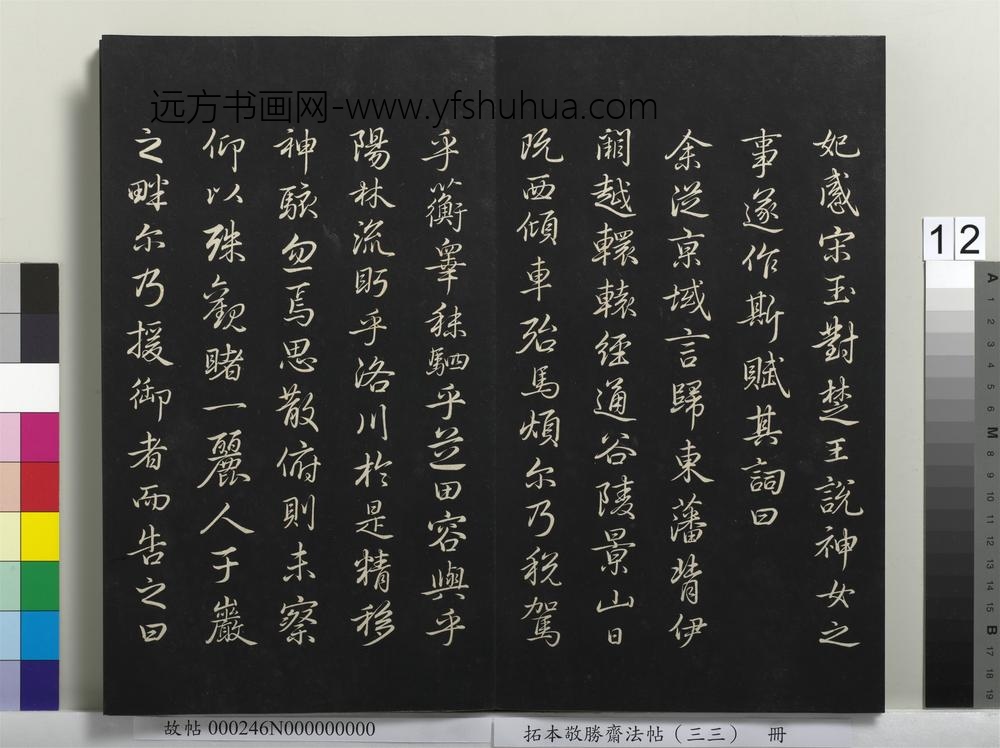 远方书画网-www.yfshuhua.com
妃感宋玉對楚王說神女之
事遂作斯賦其詞曰
余從京域言歸東藩背伊
闕越轘轅經通谷陵景山日
既西傾車殆馬煩尔乃稅駕
乎蘅睾秣駟乎芝田容與乎
陽林流眄乎洛川於是精移
神駭忽焉思散俯則未察
仰以殊觀睹一麗人于巖
之畔尔乃援御者而告之曰
12
A 1 2 3 4 5 6 M 8 9 10 11 12 13 14 15 B 17 18 19
故帖 000246N000000000
拓本敬勝齋法帖（三三） 冊